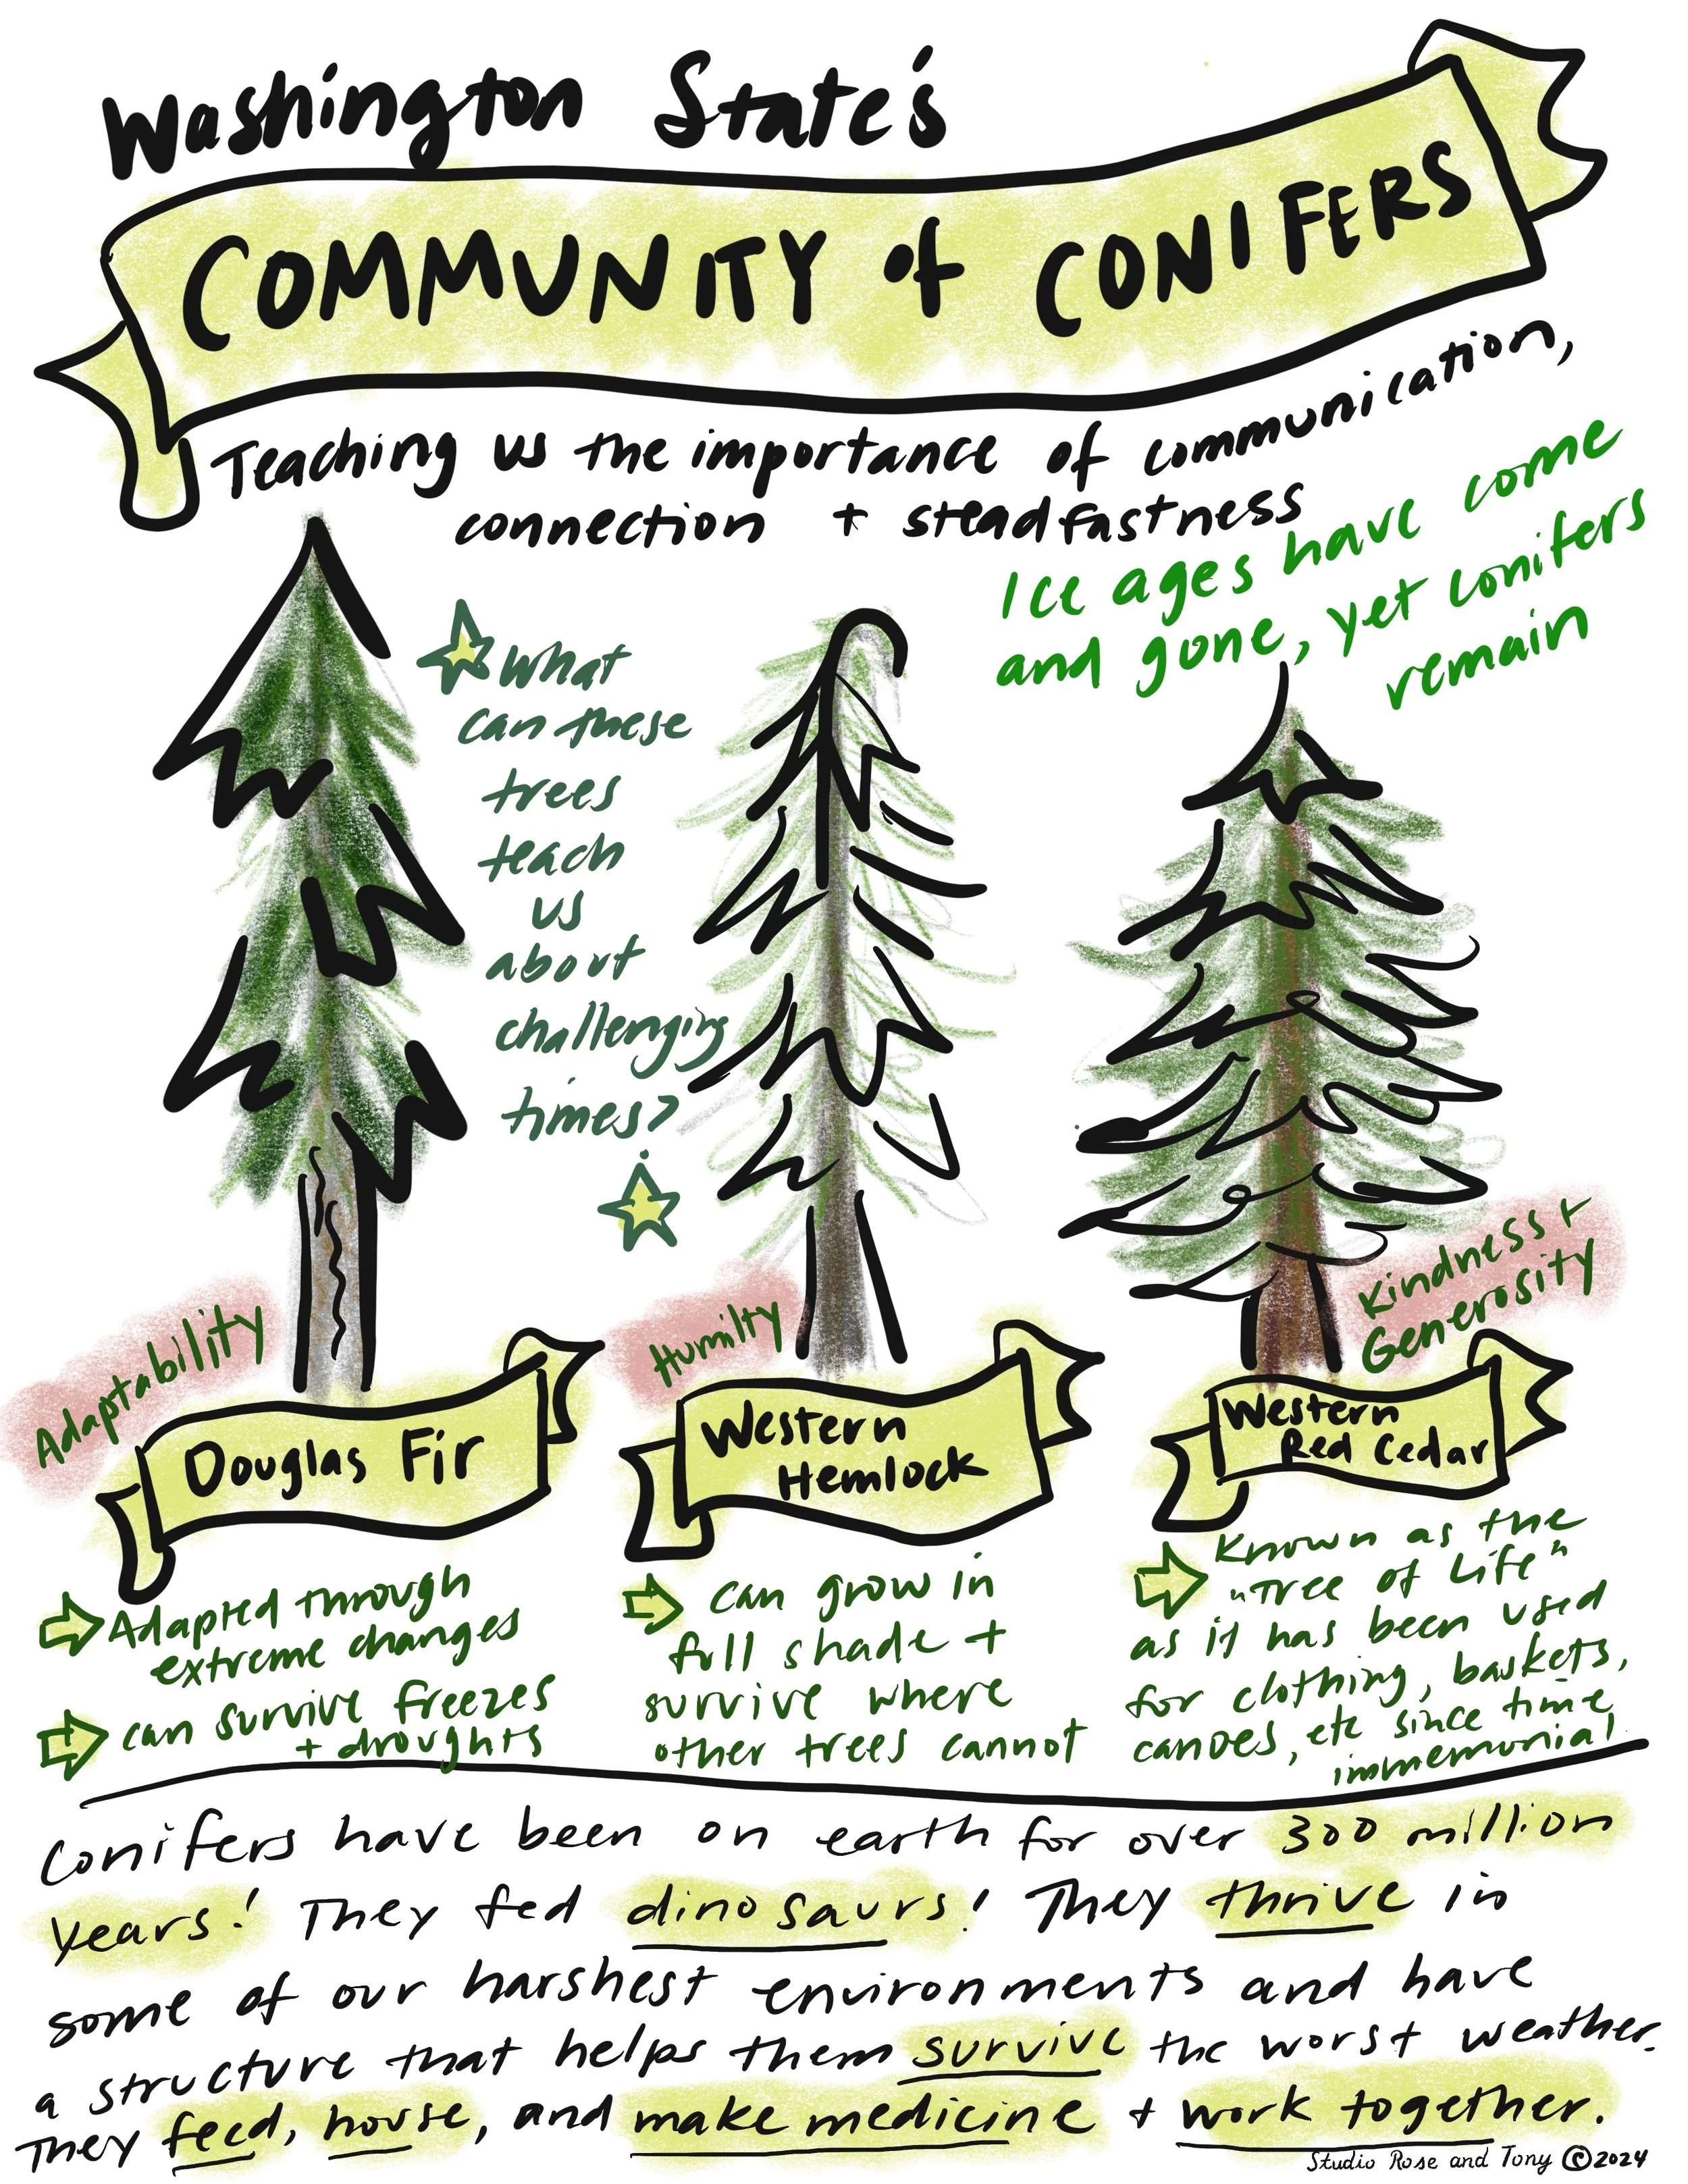 Washington State's
COMMUNITY of CONIFERS
Teaching us the importance of communication,
connection + steadfastness
Ice ages have come
and gone, yet conifers
remain
What
can these
trees
teach
us
about
challenging
times?
Adaptability
Douglas Fir
Adapted through
extreme changes
can survive freezes
+ droughts
Humilty
Western
Hemlock
can grow in
full shade +
survive where
other trees cannot
Kindness +
Generosity
Western
Red Cedar
Known as the
"Tree of Life"
as it has been used
for clothing, baskets,
canoes, etc since time
immemorial
Conifers have been on earth for over 300 million
years! They fed dinosaurs! They thrive in
some of our harshest environments and have
a structure that helps them survive the worst weather.
They feed, house, and make medicine + work together.
Studio Rose and Tony ©2024